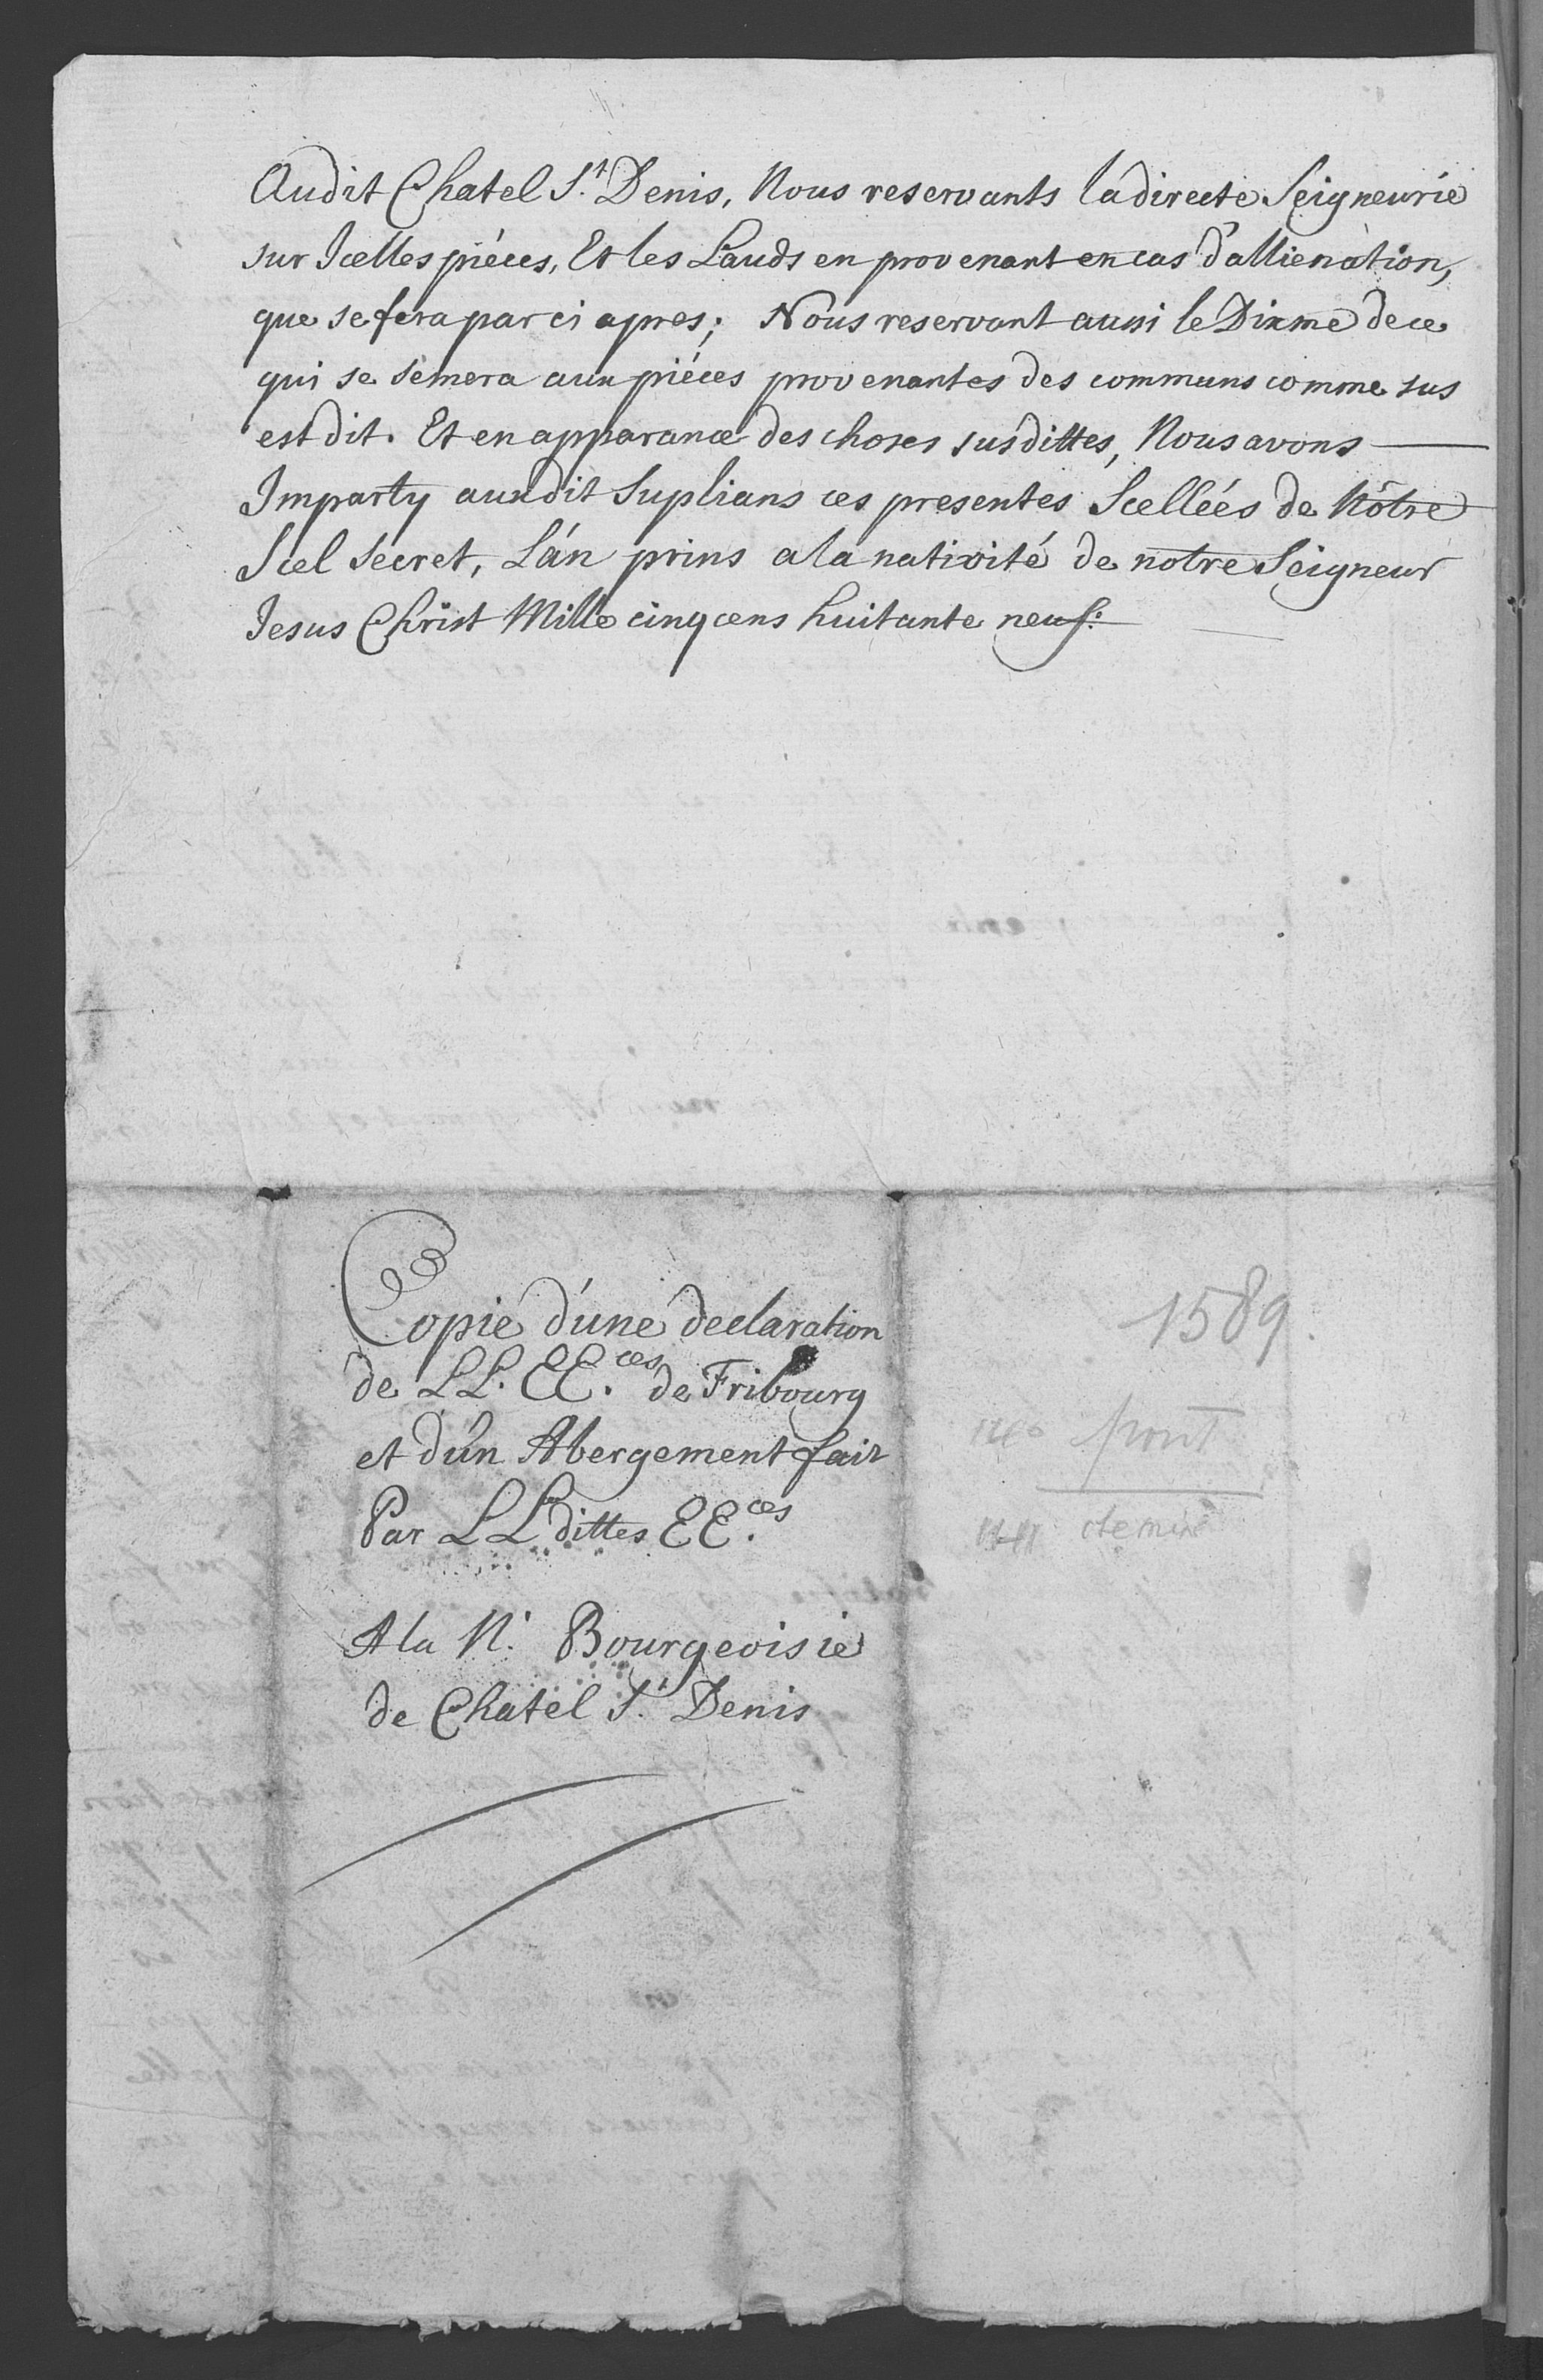 Audit Chatel S.t Denis, Nous reservants la directe Seigneurie
sur Icelles piéces, Et les Lauds en provenant en cas d'allienation,
que se fera par ci apres; Nous reservant aussi le Dixme de ce
qui se semera aux piéces provenantes des communs comme sus
est dit. Et en apparance des choses susdittes, Nous avons
Imparty auxdit Suplians ces presentes Scellées de Nôtre
Scel Secret, L'án prins a la nativité de notre Seigneur
Jesus Christ Mille cinq cens huitante neuf:
Copie d'une declaration
de LL. EE.ces de Fribourg
et d'un Abergement fait
Par LL dittes EE.ces
A la N. Bourgeoisie
de Chatel S.t Denis
1589.
pont
chemin